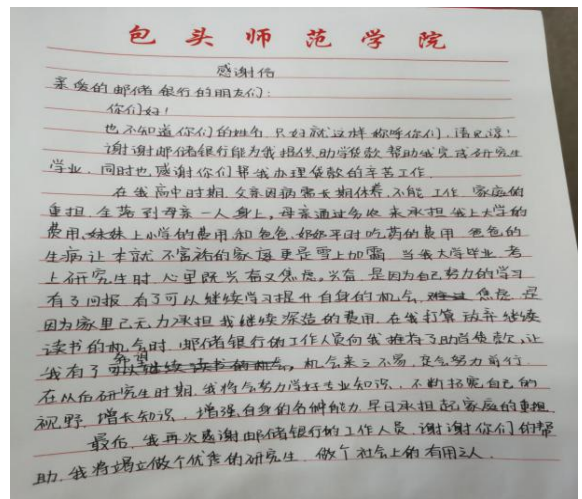 包头师范学院
感谢信
亲爱的邮储银行的朋友们:
你们好!
也不知道你们的姓名,只好就这样称呼你们,请见谅!
谢谢邮储银行能为我提供助学贷款帮助我完成研究生
学业,同时也感谢你们帮我办理贷款的辛苦工作.
在我高中时期,父亲因病需长期休养,不能工作,家庭的
重担全落到母亲一人身上,母亲通过务农来承担我上大学的
费用,妹妹上小学的费用和爸爸、奶奶平时吃药的费用.爸爸的
生病让本就不富裕的家庭更是雪上加霜.当我大学毕业,考
上研究生时,心里既兴奋又焦虑,兴奋是因为自己努力的学习
有了回报,有了可以继续学习提升自身的机会,焦虑是
因为家里已无力承担我继续深造的费用.在我打算放弃继续
读书的机会时,邮储银行的工作人员向我推荐了助学贷款,让
我有了希望,机会来之不易,定会努力前行.
在以后研究生时期,我将会努力学好专业知识,不断拓宽自己的
视野,增长知识,增强自身的各种能力,早日承担起家庭的重担.
最后,我再次感谢邮储银行的工作人员,谢谢你们的帮
助.我将竭立做个优秀的研究生,做个社会上的有用之人.